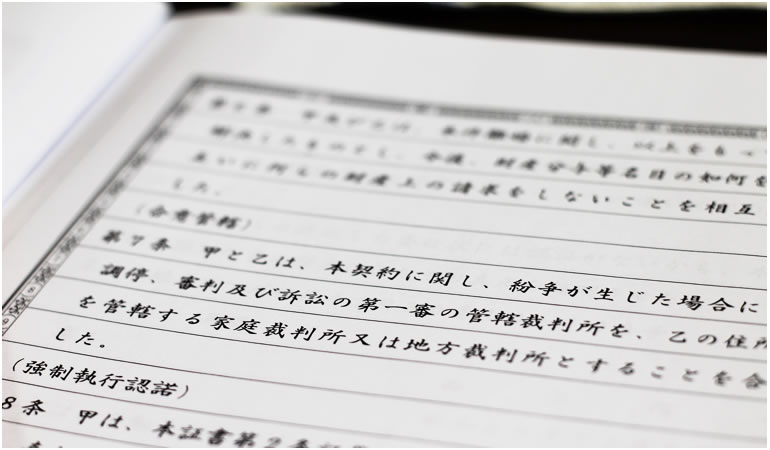 第６条　甲及び乙は、本件離婚に関し、以上をもっ
解決したものとし、今後、財産分与等名目の如何を
互いに何らの財産上の請求をしないことを相互
した。
（合意管轄）
第７条　甲と乙は、本契約に関し、紛争が生じた場合に
調停、審判及び訴訟の第一審の管轄裁判所を、乙の住所
を管轄する家庭裁判所又は地方裁判所とすることを合
した。
（強制執行認諾）
８条　甲は、本証書第２条